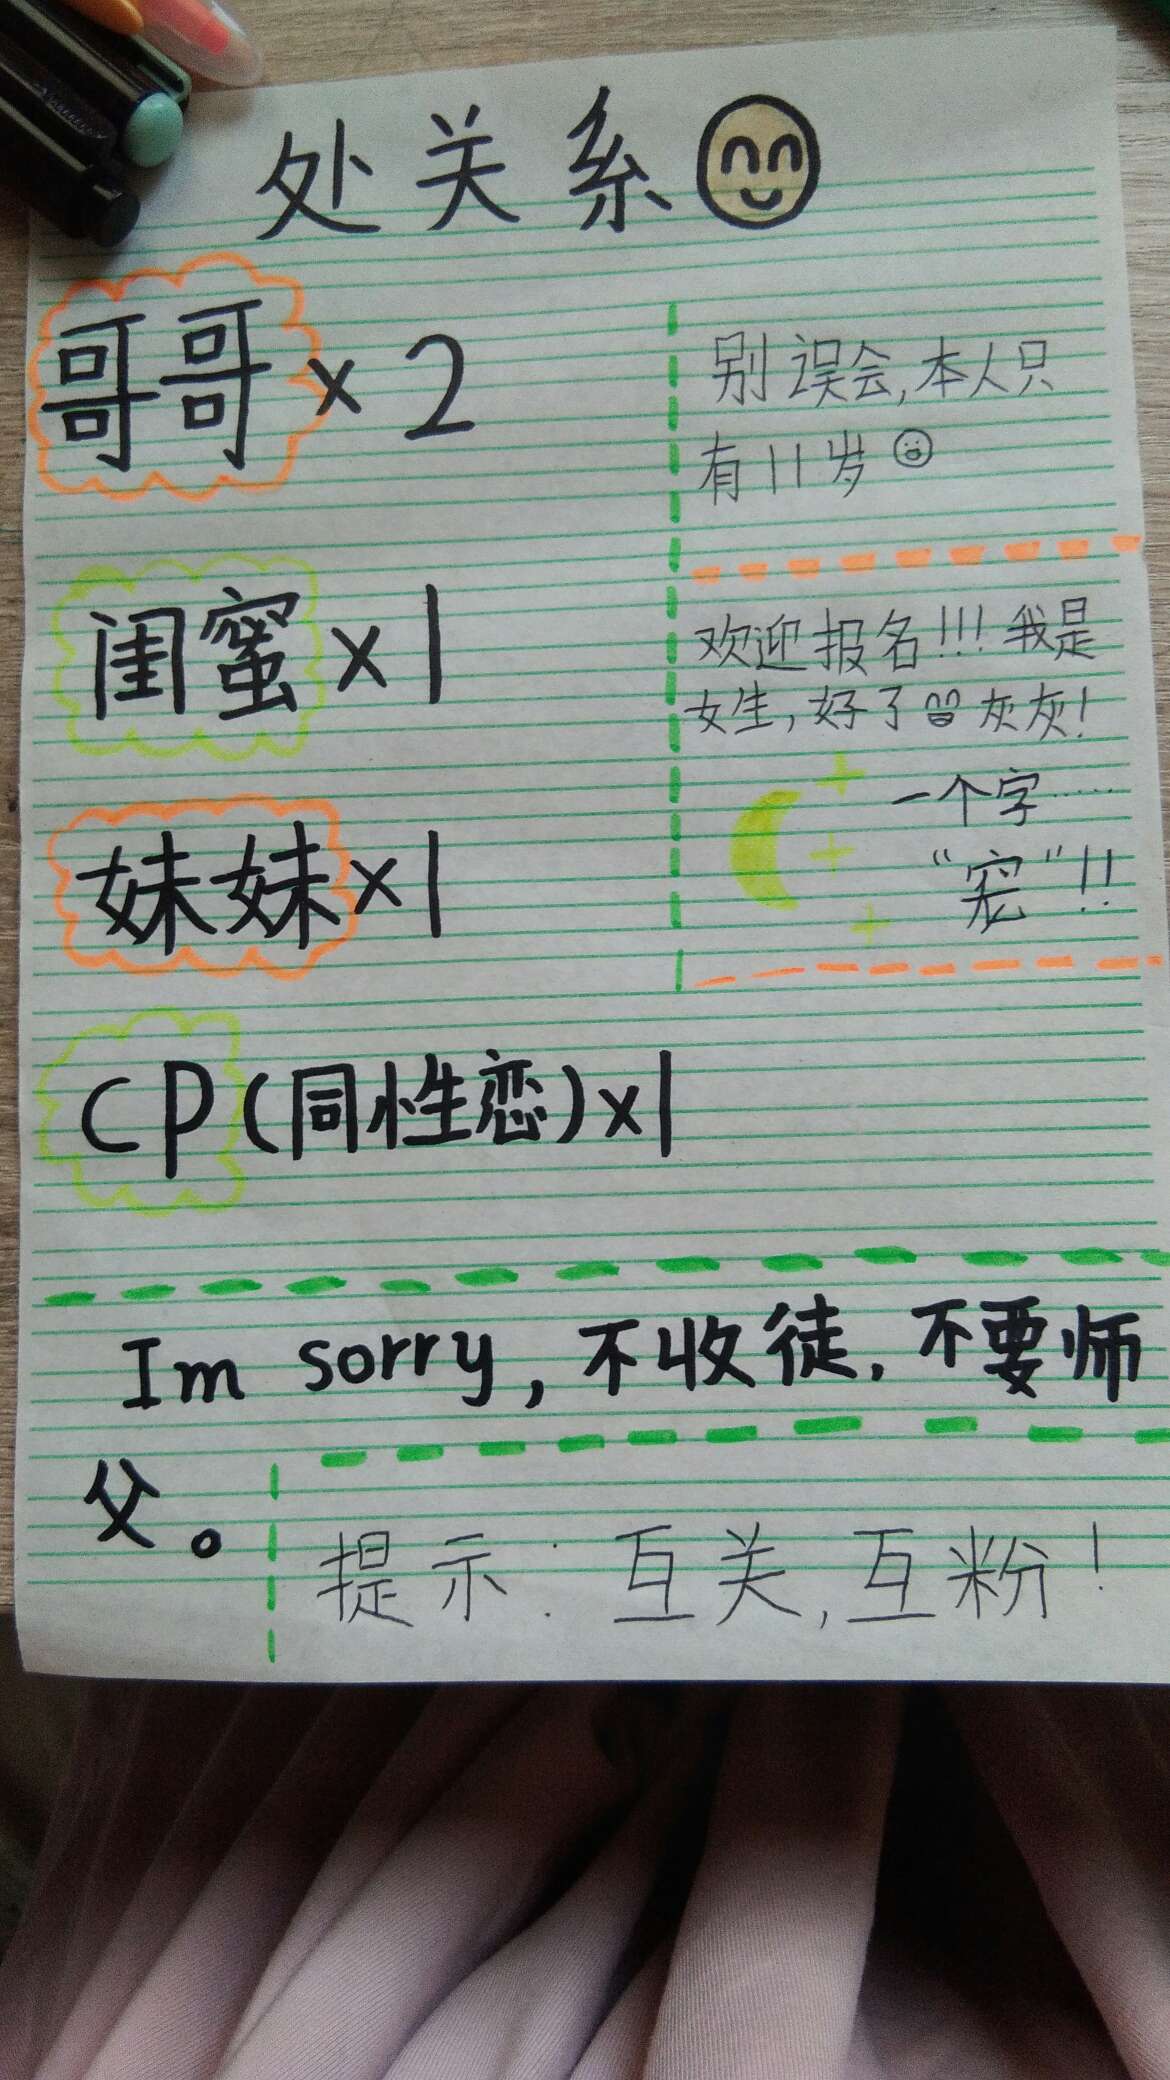 处关系
哥哥×2
别误会,本人只
有11岁
闺蜜×1
欢迎报名!!!我是
女生,好了 灰灰!
妹妹×1
一个字……
“宠”!!
CP(同性恋)×1
Im sorry,不收徒,不要师
父。
提示:互关,互粉!